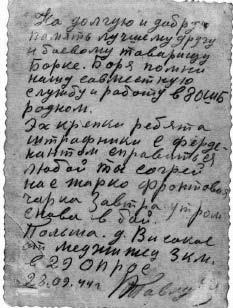 На долгую и добрую
память лучшему другу
и боевому товарищу
Борке. Боря помни
нашу совместную
службу и работу в 8 ОШБ
родном.
Эх крепки ребята
штрафники с
справиться
любой ты согрей
нас жарко фронтовая
чарка завтра утром
снова в бой
Польша. д. Високое
от 3 км.
в 29
28.09.44 г.